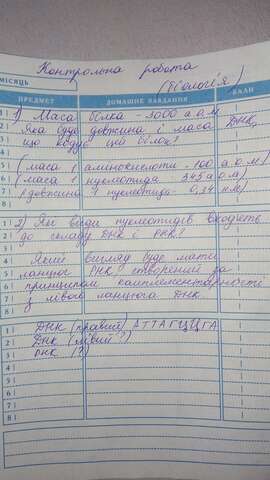 Контрольна робота
(Біологія)
МІСЯЦЬ
ПРЕДМЕТ ДОМАШНЄ ЗАВДАННЯ БАЛИ
1 1) Маса білка - 3000 а.о.м
2 Яка буде довжина і маса ДНК,
3 що кодує цей білок?
4
5 (маса 1 амінокислоти - 100 а.о.м)
6 (маса 1 нуклеотида 345 а.о.м)
7 (довжина 1 нуклеотида - 0,34 нм)
8
1 2) Які види нуклеотидів входять
2 до складу ДНК і РНК?
3
4 Який вигляд буде мати
5 ланцюг РНК? створений за
6 принципом комплементарності
7 з лівого ланцюга ДНК
8
1 ДНК (правий) АТТАГЦЦГА
2 ДНК (лівий?)
3 РНК (?)
4
5
6
7
8